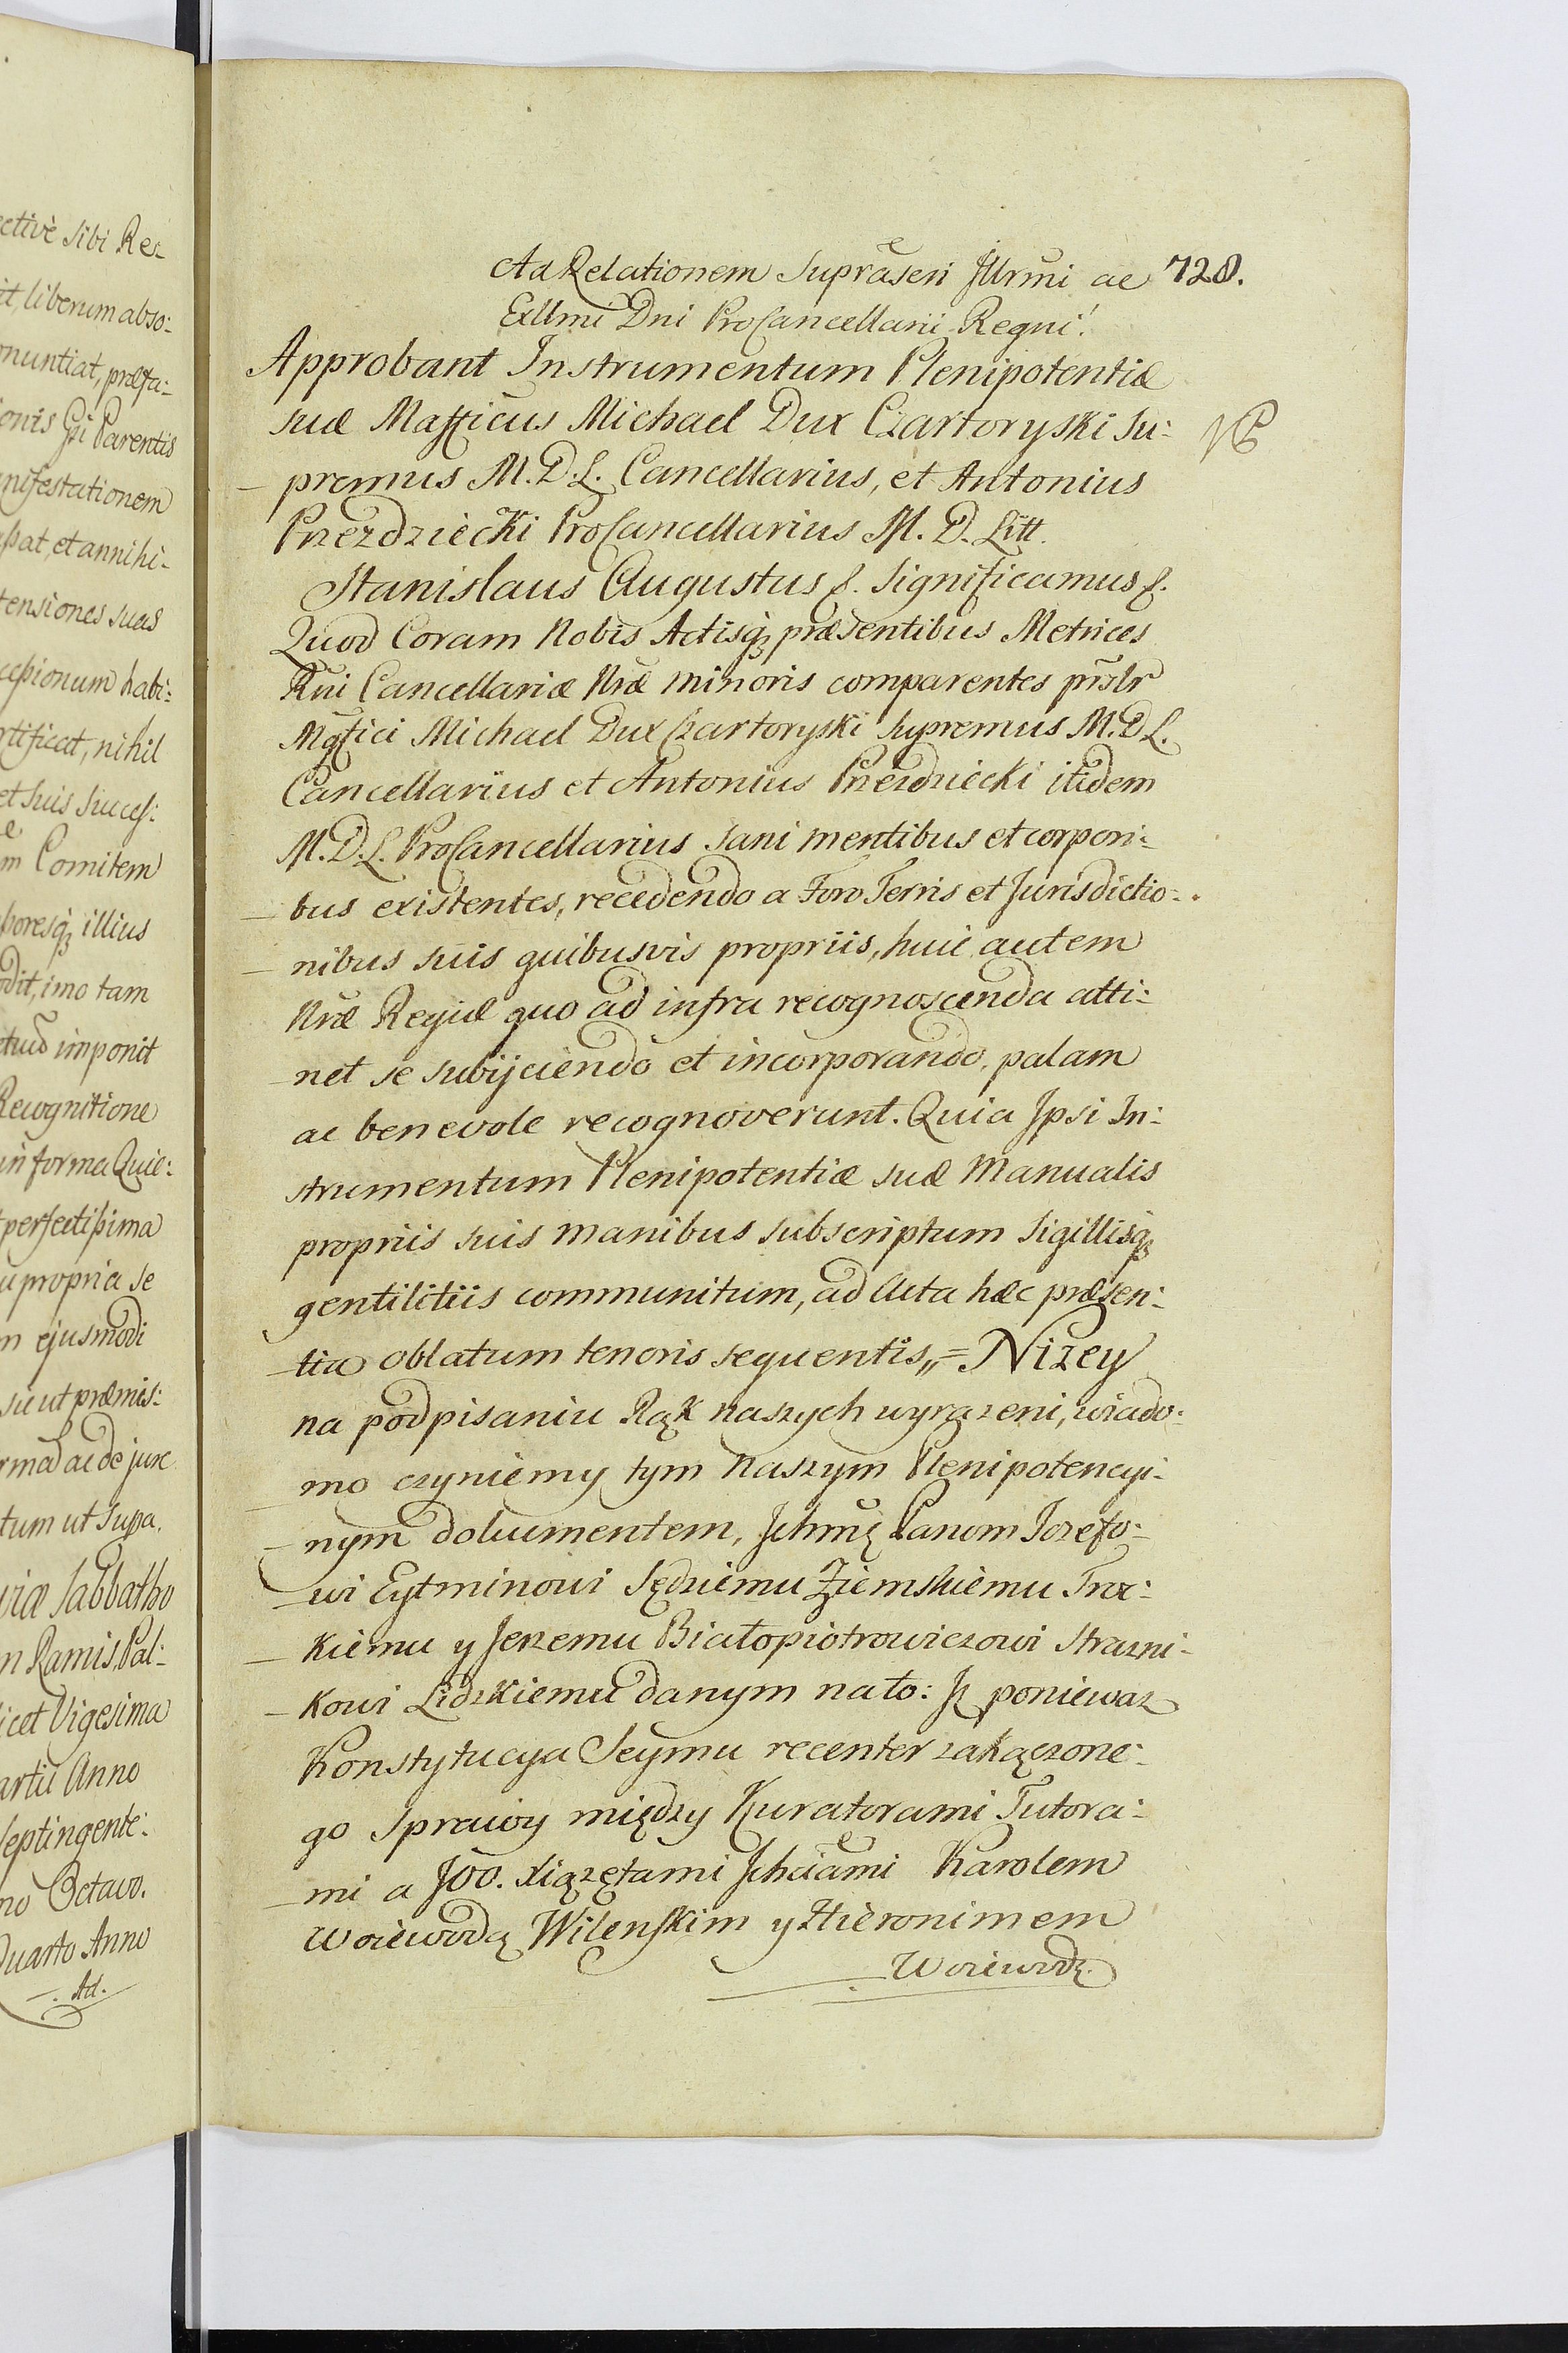 ective sibi Res-
it, liberum abso:
nuntiat, præfa:
onis Gñi Parentis
nifestationem
ßat, et annihi-
tensiones suas
ceßionum habi:
rtificat, nihil
et suis Succes:
m Comitem
ßoresq; illius
odit, imo tam
etuo imponit
Recognitione
in forma Quie:
perfectißima
u propria se
m ejusmodi
sicut præmis:
rma ac de jure
tum ut Supa.
viæ Sabbatho
m Ramis, Pal:
icet Vigesima
artii Anno
Septingente:
no Octavo.
Quarto Anno
Ad.
Ad Relationem Suprãseri Jllrmi ac 728.
Exllmi Dni ProCancellarii Regni.
Approbant Instrumentum Plenipotentiæ
suæ Mafficus Michael Dux Czartoryski Su:
premus M. D. L. Cancellarius, et Antonius
Przezdziecki ProCancellarius M. D. Litt.
Stanislaus Augustus &. Significamus &.
Quod Coram Nobis Actisq; præsentibus Metrices
Rñi Cancellariæ Nræ minoris comparentes prslr
Mgfici Michael Dux Czartoryski Supremus M. D L.
Cancellarius et Antonius Przezdziecki itidem
M. D. L. ProCancellarius sani mentibus et corpori:
bus existentes, recedendo a Foro Terris et Jurisdictio:
nibus suis quibusvis propriis, huic autem
Nræ Regiæ quo ad infra recognoscenda atti:
net se subijciendo et incorporando, palam
ac benevole recognoverunt. Quia Jpsi In:
strumentum Plenipotentiæ suæ Manualis
propriis suis manibus subscriptum Sigillisq;
gentilitiis communitum, ad Acta hæc præsen:
tia oblatum tenoris sequentis „= Nizey
na podpisaniu Rąk naszych wyrazeni, wiado:
mo czyniemy tym Naszym Plenipotencyi:
nym dokumentem, Jchmć Panom Jozefo:
wi Eytminowi Sędziemu Ziemskiemu Troc:
kiemu y Jerzemu Białopiotrowiczowi Strazni:
kowi Lidzkiemu danym na to: Jz poniewaz
Konstytucya Seymu recenter zakączone:
go Sprawy między Kuratorami Tutora:
mi a JOO. Xiązętami Jchciami Karolem
Woiewodą Wilenskim y Hieronimem
Woiewodz.